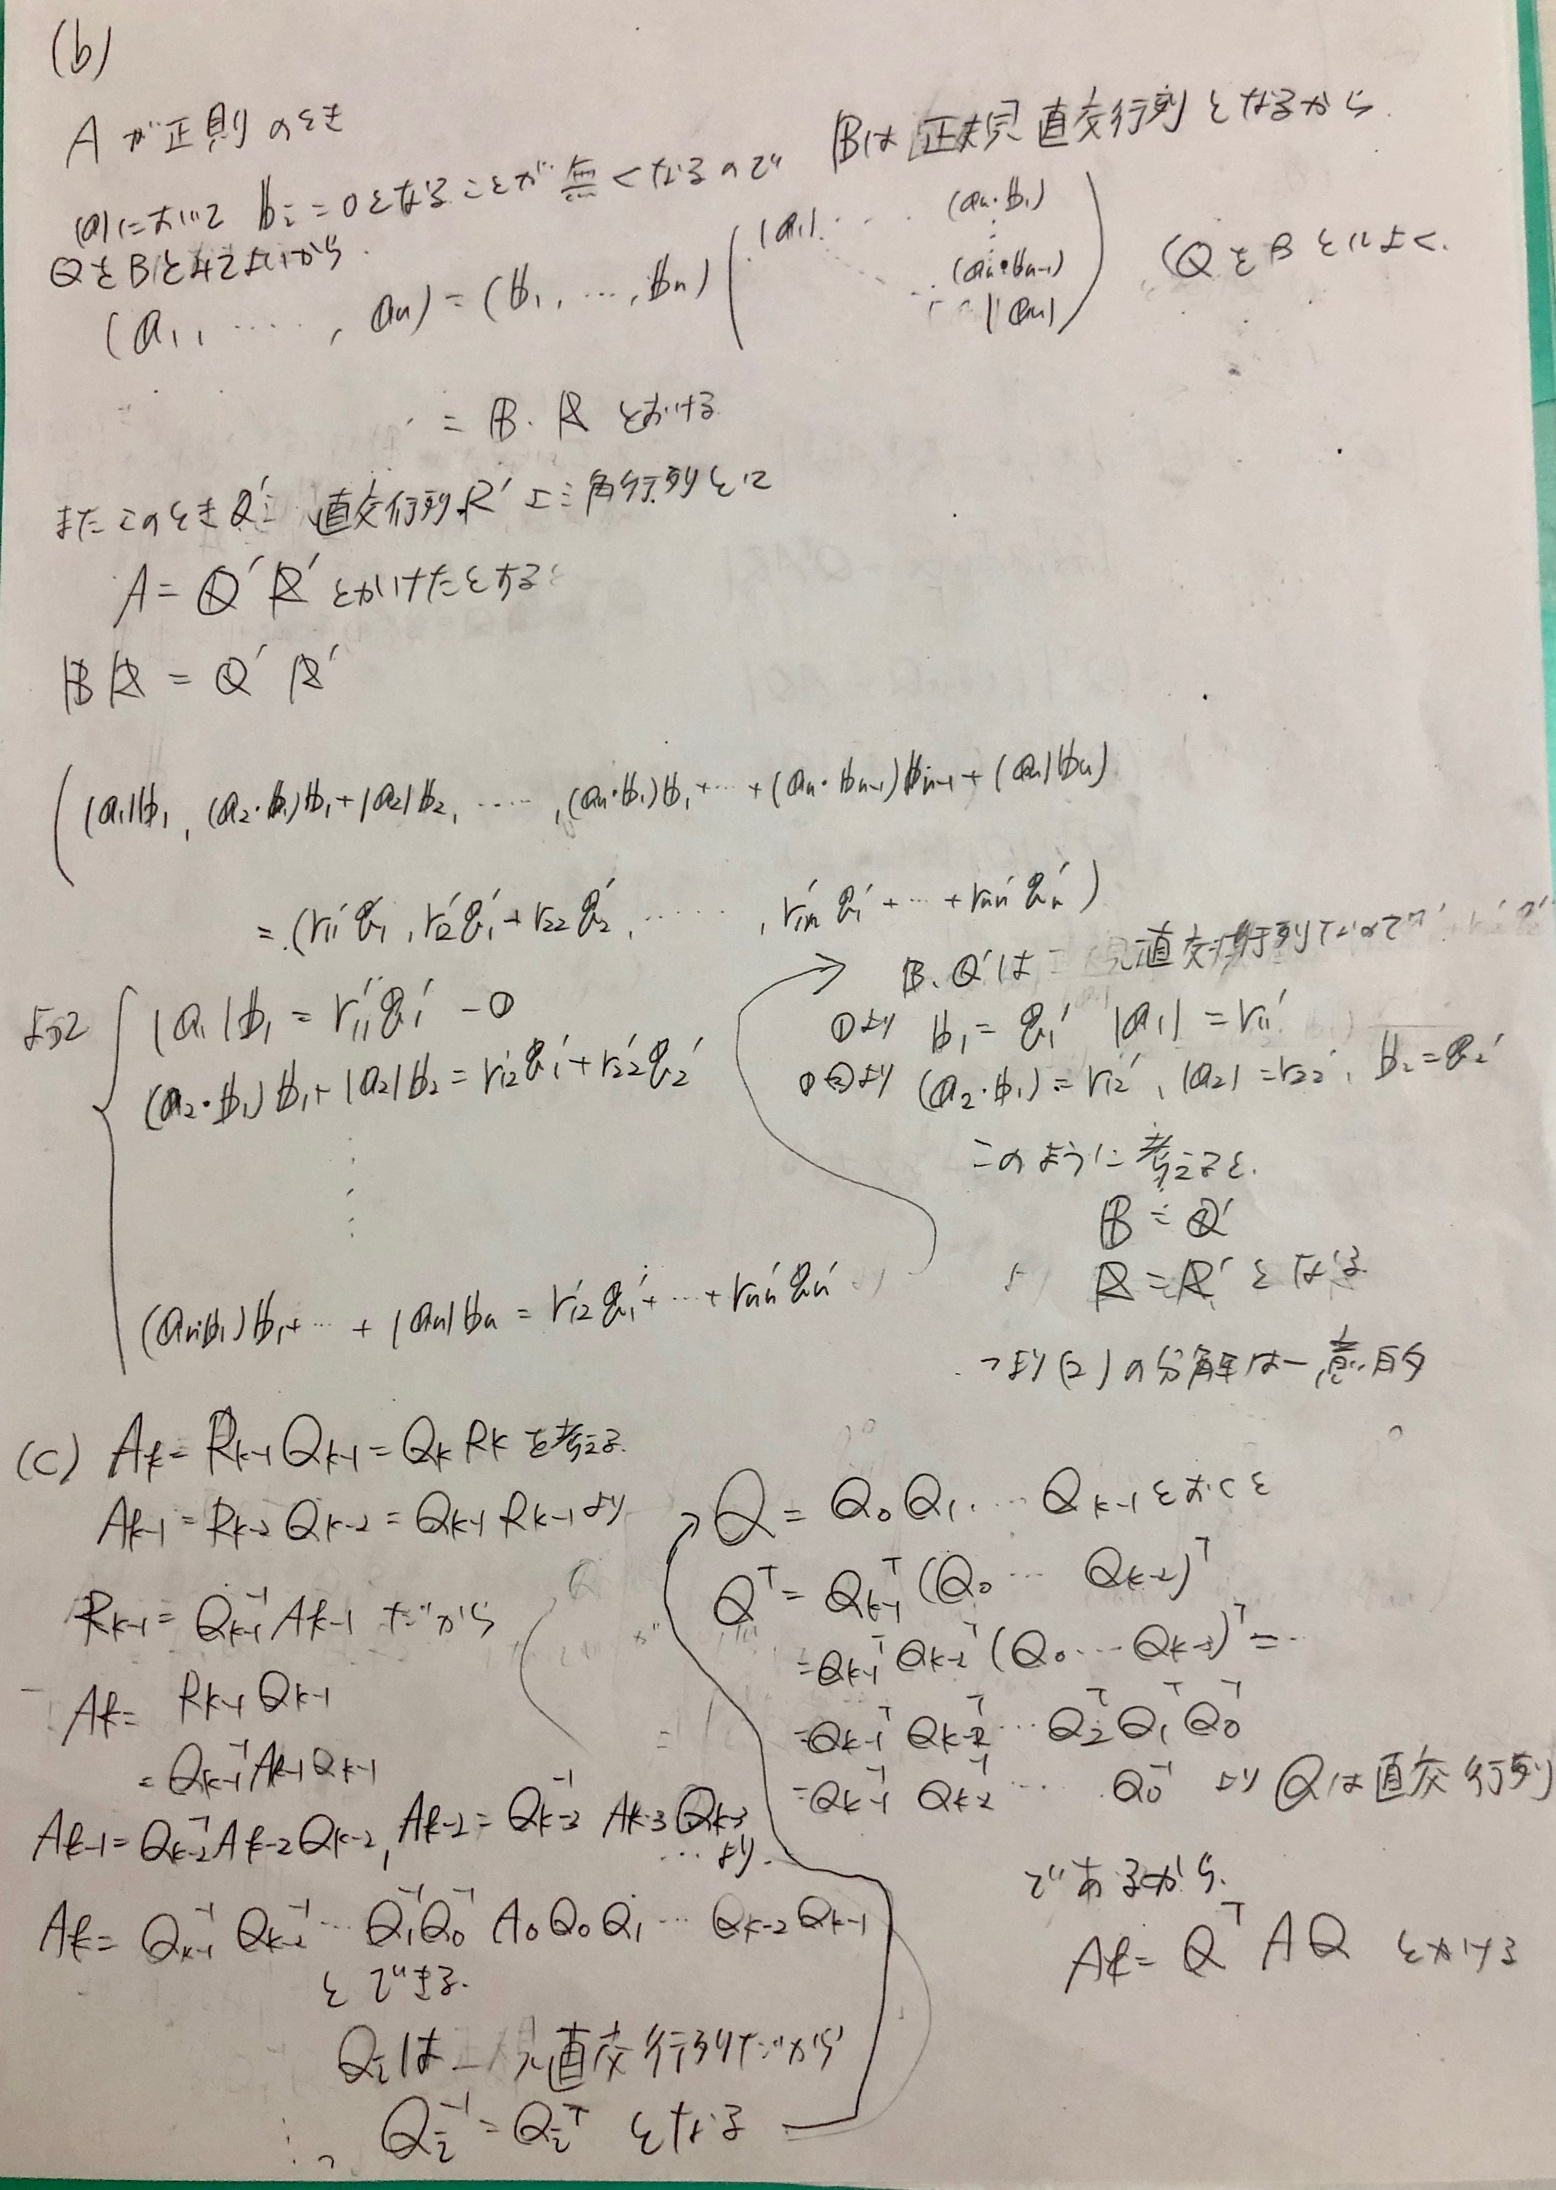 (b)
Aが正則のとき
(a)において b_i=0となることが無くなるので Bは正規直交行列となるから
QをBとみてよいから
(a_1, ……, a_n) = (b_1, …, b_n) ( |a_1| … (a_n・b_1) ⋮ (a_n・b_{n-1}) |a_n| ) (QをBとしてよく.
= B・R とおける
またこのときQ': 直交行列 R' 上三角行列として
A = Q'R' とかけたとすると
BR = Q'R'
( |a_1|b_1, (a_2・b_1)b_1+|a_2|b_2, ……, (a_n・b_1)b_1+…+(a_n・b_{n-1})b_{n-1}+|a_n|b_n )
= (r_{11}'q_1', r_{12}'q_1'+r_{22}q_2', ……, r_{1n}'q_1'+…+r_{nn}'q_n')
よって
|a_1|b_1 = r_{11}'q_1' -①
(a_2・b_1)b_1+|a_2|b_2 = r_{12}'q_1'+r_{22}'q_2'
⋮
(a_n・b_1)b_1+…+|a_n|b_n = r_{12}'q_1'+…+r_{nn}'q_n'
B, Q'は 直交行列なので
①より b_1 = q_1' |a_1| = r_{11}'
①②より (a_2・b_1) = r_{12}', |a_2| = r_{22}', b_2 = q_2'
このように考えると.
B = Q'
R = R' となる
つまり(2)の分解は一意的
(c) A_k = R_{k-1}Q_{k-1} = Q_kR_k を考える.
A_{k-1} = R_{k-2}Q_{k-2} = Q_{k-1}R_{k-1} より
R_{k-1} = Q_{k-1}^{-1}A_{k-1} だから
A_k = R_{k-1}Q_{k-1}
= Q_{k-1}^{-1}A_{k-1}Q_{k-1}
A_{k-1} = Q_{k-2}^{-1}A_{k-2}Q_{k-2}, A_{k-2} = Q_{k-3}^{-1}A_{k-3}Q_{k-3}
… より.
A_k = Q_{k-1}^{-1}Q_{k-2}^{-1}…Q_1^{-1}Q_0^{-1}A_0Q_0Q_1…Q_{k-2}Q_{k-1}
とできる.
Q_iは 直交行列だから
Q_i^{-1} = Q_i^T となる
Q = Q_0Q_1……Q_{k-1} とおくと
Q^T = Q_{k-1}^T(Q_0…Q_{k-2})^T
= Q_{k-1}^TQ_{k-2}^T(Q_0…Q_{k-3})^T = …
= Q_{k-1}^TQ_{k-2}^T…Q_2^TQ_1^TQ_0^T
= Q_{k-1}^{-1}Q_{k-2}^{-1}…Q_0^{-1} より Qは直交行列
であるから.
A_k = Q^TAQ とかける